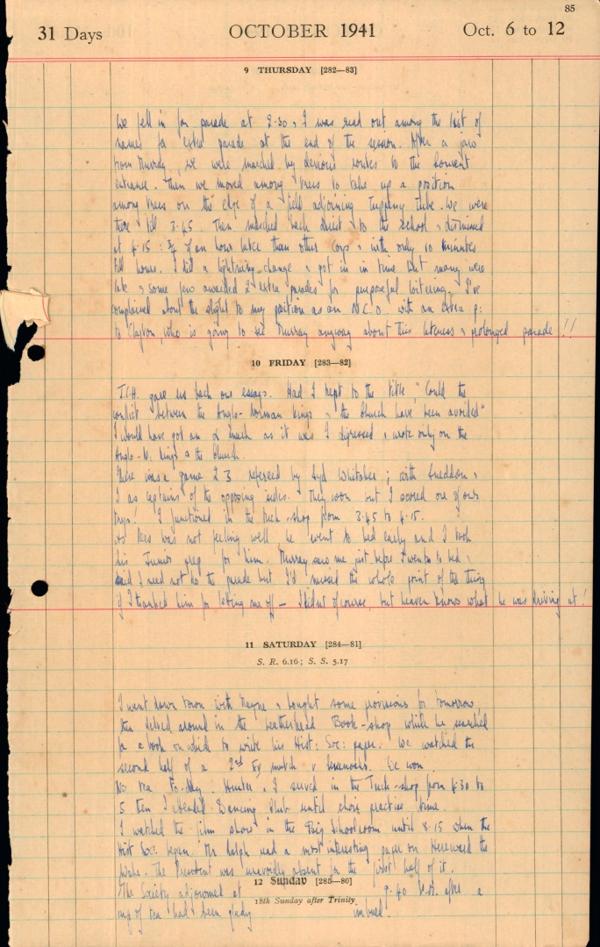 85
31 Days OCTOBER 1941 Oct. 6 to 12
9 THURSDAY [282—83]
We fell in for parade at 2.30, I was read out among the list of
names for extra parade at the end of the session. After a jaw
from Murray, we were marched by devious routes to the
entrance. Then we moved among trees to take up a position
among trees on the edge of a field adjoining We were
there till 3.45. Then marched back direct to the school, dismissed
at 4.15: ¾ of an hour later than other Corps, with only 10 minutes
till hours. I did a lightning change & got in in time but many were
late & some few awarded 2 extra parades for purposeful loitering. I've
complained about the slight to my position as an N.C.O. with an extra p:
to Clayton, who is going to see Murray anyway about this lateness & prolonged parade !!
10 FRIDAY [283—82]
gave us back our essays. Had I kept to the title "Could the
conflict between the Anglo-Norman Kings & the Church have been avoided"
I would have got an α much as it was I digressed, wrote only on the
Anglo-N. Kings & the Church.
There was a game 2 3 refereed by Syd ; with Sneddon,
I as captains of the opposing sides. They won but I scored one of our
trys! I functioned in the Tuck-shop from 3.45 to 4.15.
As Rees was not feeling well he went to bed early and I took
his Junior prep for him. Murray saw me just before I went to bed,
said I need not do the parade but I'd missed the whole point of the thing
if I thanked him for letting me off — I did of course, but heaven knows what he was driving at!
11 SATURDAY [284—81]
S. R. 6.16; S. S. 5.17
I went down town with Mayne & bought some provisions for tomorrow,
then around in the Leatherhead Book-shop while he searched
for a book on which to write his Hist: Soc: paper. We watched the
second half of a 2nd XV match v Sevenoaks. We won
No tea Hunter & I served in the Tuck-shop from 4.30 to
5 then I attended Dancing Club until choir practice time.
I watched the film show in the Big Schoolroom until 8.15 when the
Hist Soc. began. Mr Ralph read a most interesting paper on Hereward the
Wake. The President was absent for the first half of it.
12 Sunday [285—80]
The Society adjourned at 9.40 after a
18th Sunday after Trinity
mug of tea had been imbued.